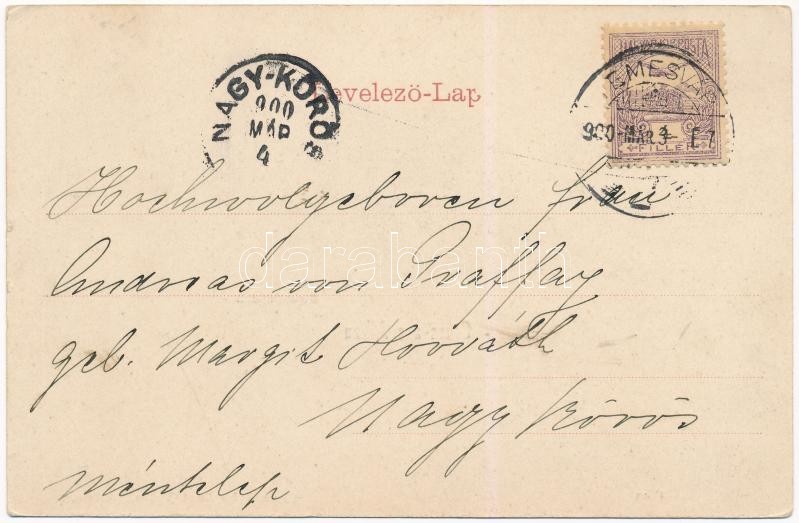 NAGY-KŐRÖS
900
MÁR
4
Levelező-Lap
MAGYAR KIR. POSTA
TEMESVÁR
900 MÁR 3 E7
FILLÉR
Hochwolgeboren frau
darabanth
Andreas von
geb. Margit Horváth
Nagy Kőrös